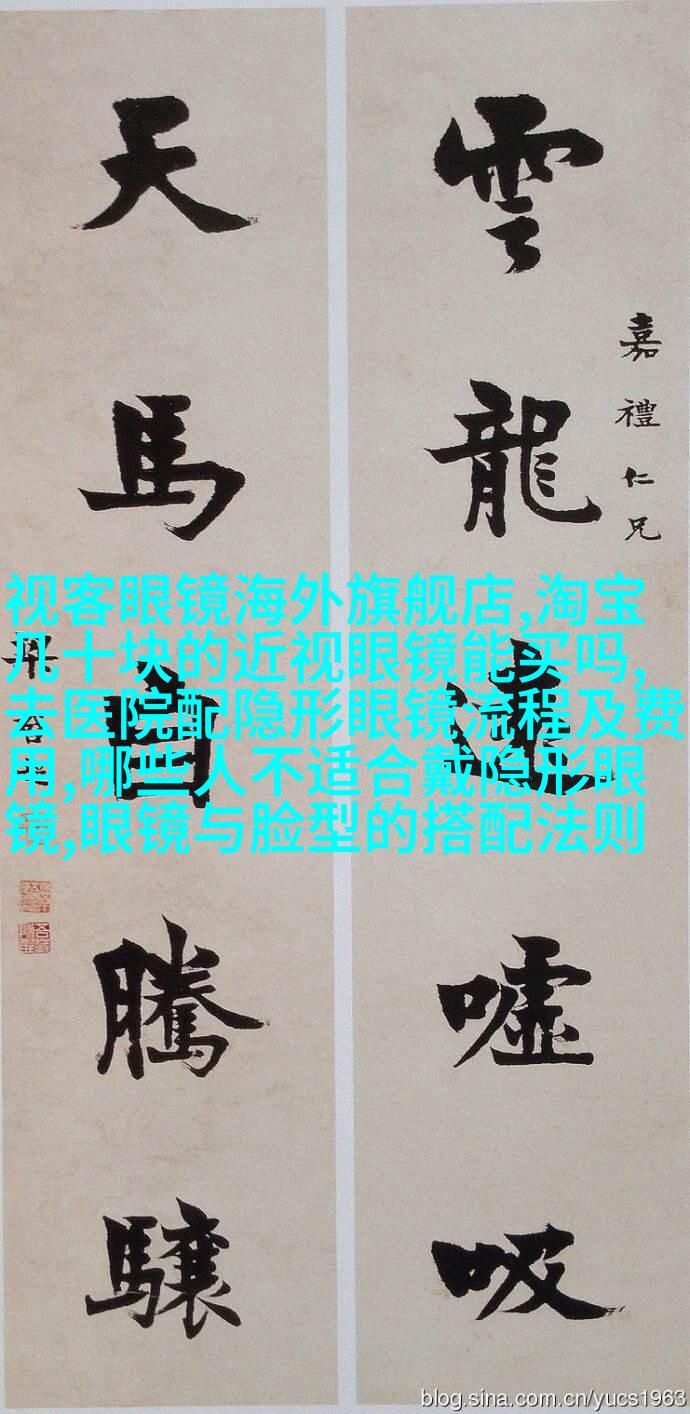 雲龍遠噓吸
嘉禮仁兄
天馬自騰驤
视客眼镜海外旗舰店,淘宝
几十块的近视眼镜能买吗,
去医院配隐形眼镜流程及费
用,哪些人不适合戴隐形眼
镜,眼镜与脸型的搭配法则
blog.sina.com.cn/yucs1963